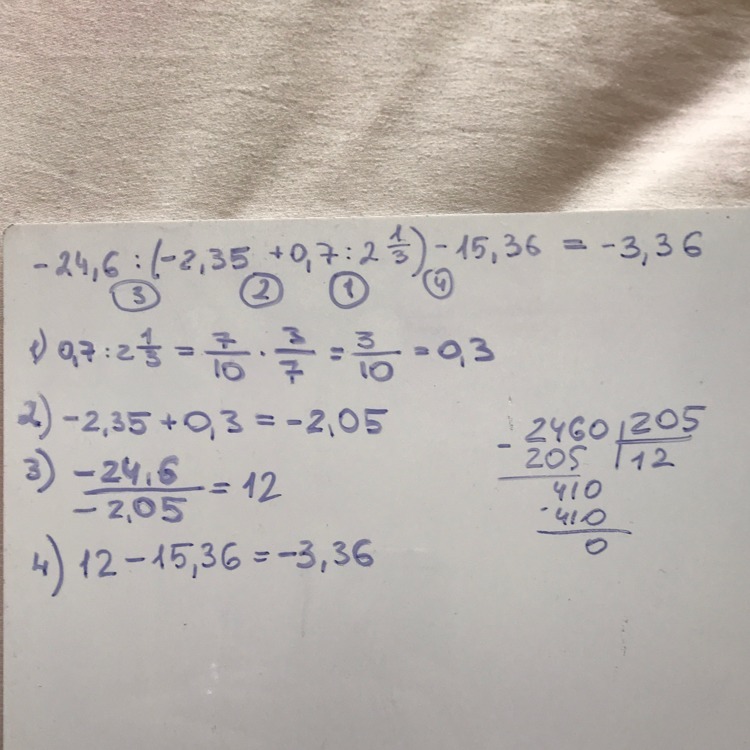 -24,6 : (-2,35 + 0,7 : 2 1/3) - 15,36 = -3,36
3 2 1 4
1) 0,7 : 2 1/3 = 7/10 · 3/7 = 3/10 = 0,3
2) -2,35 + 0,3 = -2,05
3) -24,6/-2,05 = 12
4) 12 - 15,36 = -3,36
- 2460 | 205
205 | 12
410
- 410
0